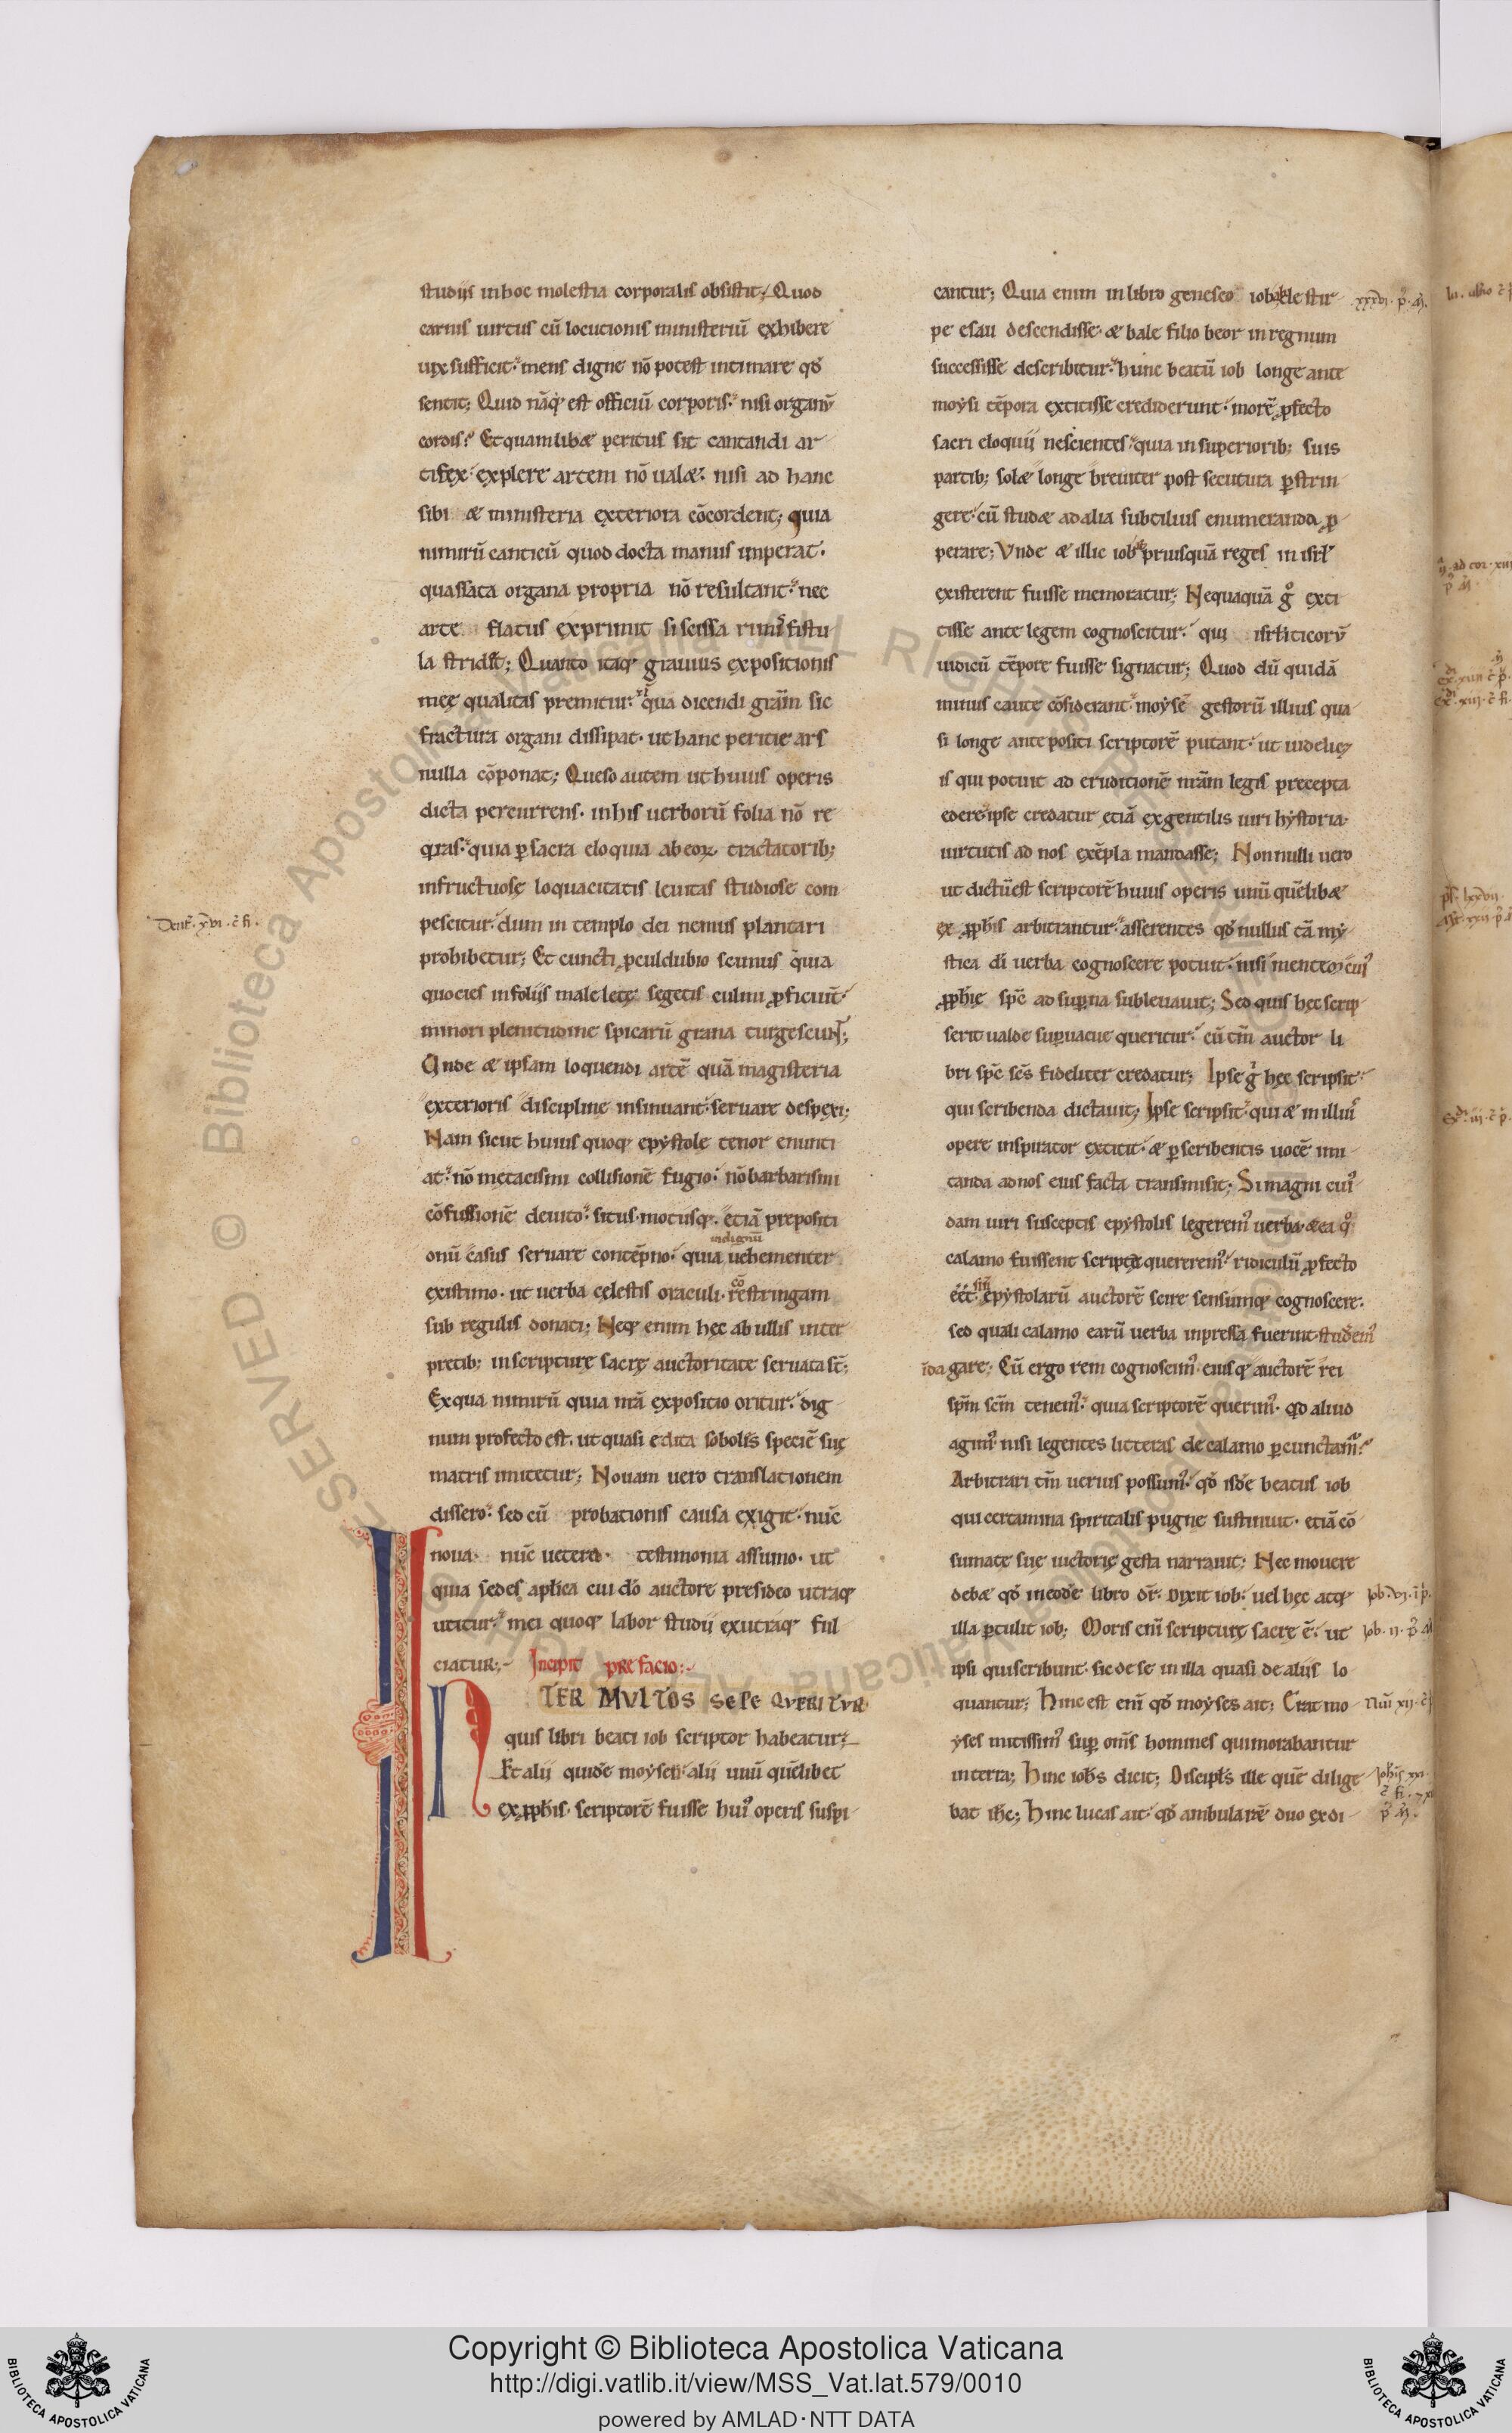 studijs inhoc molestia corporalis obsistit; Quod
carnis uirtus cū locutionis ministeriū exhibere
uix sufficit. mens digne nō potest intimare qđ
sentit; Quid nāq; est officiū corporis. nisi organū
cordis? Et quamlibæ peritus sit cantandi ar
tifex. explere artem nō ualæ. nisi ad hanc
sibi æ ministeria exteriora cōcordent; quia
nimirū canticū quod docta manus imperat.
quassata organa propria nō resultant. nec
arte flatus exprimit si scissa rimis fistu
la stridet; Quanto itaq; grauius expositionis
meę qualitas premitur. qua dicendi grām sic
fractura organi dissipat. ut hanc peritie ars
nulla cōponat; Queso autem ut huius operis
dicta percurrens. in his uerborū folia nō re
quiras. quia p sacra eloquia ab eoꝝ tractatorib;
infructuosę loquacitatis leuitas studiose com
pescitur. dum in templo dei nemus plantari
prohibetur; Et cuncti pculdubio scimus quia
quocies in folijs male letę segetis culmi pficiūt.
minori plenitudine spicarū grana turgescuɴt;
Vnde æ ipsam loquendi artē quā magisteria
exterioris discipline insinuant. seruare despexi;
Nam sicut huius quoq; epystole tenor enunti
at. nō metacismi collisionē fugio. nō barbarismi
cōfussionē deuito. situs motusq;. etiā prepositi
onū casus seruare contēpno. quia uehementer
indignū
existimo. ut uerba cęlestis oraculi. restringam
sub regulis donati; Neq; enim hęc ab ullis inter
pretib; in scripturę sacrę auctoritate seruata st̄;
Ex qua nimirū quia nrā expositio oritur. dig
num profecto est. ut quasi edita sobolis speciē suę
matris imitetur; Nouam uero translationem
dissero. sed cū probationis causa exigit. nūc
noua. nūc uetera. testimonia assumo. ut
quia sedes aplica cui dō auctore presideo utraq;
utitur. mei quoq; labor studii ex utraq; ful
ciatur;. Incipit prefacio:.
INTER MVLTOS SEPE QVERITVR
quis libri beati iob scriptor habeatur;
Et alii quidē moysen. alii unū quēlibet
ex pphis. scriptorē fuisse hui' operis suspi
cantur; Quia enim in libro geneseo iobab de stir
pe esau descendisse. æ bale filio beor in regnum
successisse describitur. hunc beatū iob longe ante
moysi tēpora extitisse crediderunt. morē pfecto
sacri eloquij nescientes. quia in superiorib; suis
partib; solæ longe breuiter post secutura pstrin
gere. cū studæ ad alia subtilius enumeranda p
perare; Vnde æ illic iobab priusquā reges in isrł
existerent fuisse memoratur; Nequaquā g̊ exti
tisse ante legem cognoscitur. qui isrłiticorū
iudicū tēpore fuisse signatur; Quod dū quidā
minus caute cōsiderant. moysē gestorū illius qua
si longe ante positi scriptorē putant. ut uidelicꝫ
is qui potuit ad eruditionē nrām legis precepta
edere. ipse credatur etiā ex gentilis uiri hystoria.
uirtutis ad nos exēpla mandasse; Non nulli uero
ut dictū est scriptorē huius operis unū quēlibæ
ex pphis arbitrantur. asserentes qđ nullus tā my
stica dī uerba cognoscere potuit. nisi mentem cui'
pphie spc̄ ad supna subleuauit; Sed quis hęc scrip
serit ualde supuacue queritur. cū tm̄ auctor li
bri spc̄ sc̄s fideliter credatur; Ipse g̊ hęc scripsit.
qui scribenda dictauit; Ipse scripsit. qui æ in illiu'
opere inspirator extitit. æ p scribentis uocē imi
tanda ad nos eius facta transmisit; Si magni cui'
dam uiri susceptis epystolis legerem' uerba. æ ea q̊
calamo fuissent scripta quererem'. ridiculū pfecto
eēt. epystolarū auctorē scire sensumq; cognoscere.
sed quali calamo earū uerba inpressa fuerint. studem'
īdagare; Cū ergo rem cognoscim'. eiusq; auctorē rei
spm̄ scm̄ tenem'. quia scriptorē querim'. qđ aliud
agim'. nisi legentes litteras de calamo pcunctam̄?
Arbitrari tm̄ uerius possum'. qđ isdē beatus iob
qui certamina spiritalis pugne sustinuit. etiā cō
sumate sue uictorie gesta narrauit; Nec mouere
debæ qđ in eodē libro dr̄. dixit iob. uel hęc atq;
illa ptulit iob; Moris eni scripturę sacrę ē. ut
ipsi qui scribunt. sic de se in illa quasi de aliis lo
quantur; Hinc est eni qđ moyses ait; Erat mo
yses mitissim' sup om̄s homines qui morabantur
in terra; Hinc ioh̄s dicit; Discipłs ille quē dilige
bat ih̄c; Hinc lucas ait. qđ ambularē duo ex di
Deut. xvi. c̄ fi.
xxxvi. p̊. m̊.
Iob. vi. i p̊.
Iob. ii. p̊ m̊
Nūi xii. c̄
Ioh̄is xxi.
Copyright © Biblioteca Apostolica Vaticana
http://digi.vatlib.it/view/MSS_Vat.lat.579/0010
powered by AMLAD·NTT DATA
BIBLIOTECA APOSTOLICA VATICANA
BIBLIOTECA APOSTOLICA VATICANA